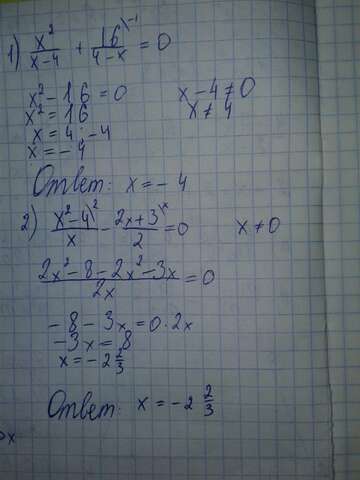 1) x²/(x-4) + 16\⁻¹/(4-x) = 0
x² - 16 = 0 x - 4 ≠ 0
x² = 16 x ≠ 4
x = 4 -4
x = -4
Ответ: x = -4
2) (x²-4\²)/x - (2x+3\ˣ)/2 = 0 x ≠ 0
(2x²-8-2x²-3x)/2x = 0
-8 - 3x = 0·2x
-3x = 8
x = -2 2/3
Ответ: x = -2 2/3